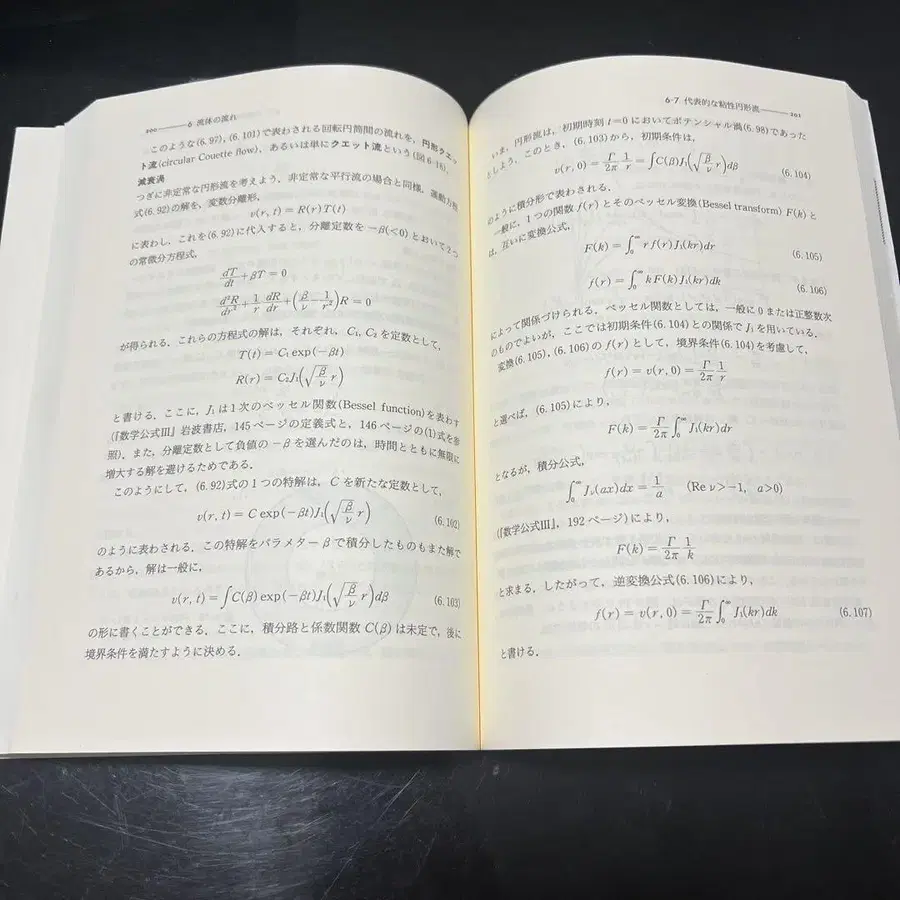 200 6 流体の流れ
このような(6.97), (6.101)で表わされる回転円筒間の流れを，円形クエッ
ト流(circular Couette flow)，あるいは単にクエット流という(図6-16)．
減衰渦
つぎに非定常な円形流を考えよう．非定常な平行流の場合と同様，運動方程
式(6.92)の解を，変数分離形，
v(r, t) = R(r)T(t)
に表わし，これを(6.92)に代入すると，分離定数を −β(<0) とおいて2つ
の常微分方程式，
dT/dt + βT = 0
d²R/dr² + 1/r dR/dr + (β/ν − 1/r²)R = 0
が得られる．これらの方程式の解は，それぞれ，C₁, C₂ を定数として，
T(t) = C₁ exp(−βt)
R(r) = C₂J₁(√(β/ν) r)
と書ける．ここに，J₁ は1次のベッセル関数(Bessel function)を表わす
(『数学公式III』岩波書店，145ページの定義式と，146ページの(1)式を参
照)．また，分離定数として負値の −β を選んだのは，時間とともに無限に
増大する解を避けるためである．
このようにして，(6.92)式の1つの特解は，C を新たな定数として，
v(r, t) = C exp(−βt)J₁(√(β/ν) r) (6.102)
のように表わされる．この特解をパラメター β で積分したものもまた解で
あるから，解は一般に，
v(r, t) = ∫C(β) exp(−βt)J₁(√(β/ν) r)dβ (6.103)
の形に書くことができる．ここに，積分路と係数関数 C(β) は未定で，後に
境界条件を満たすように決める．
6-7 代表的な粘性円形流 201
いま，円形流は，初期時刻 t=0 においてポテンシャル渦(6.98)であった
としよう．このとき，(6.103)から，初期条件は，
v(r, 0) = Γ/2π 1/r = ∫C(β)J₁(√(β/ν) r)dβ (6.104)
のように積分形で表わされる．
一般に，1つの関数 f(r) とそのベッセル変換(Bessel transform) F(k) と
は，互いに変換公式，
F(k) = ∫₀^∞ r f(r)J₁(kr)dr (6.105)
f(r) = ∫₀^∞ kF(k)J₁(kr)dk (6.106)
によって関係づけられる．ベッセル関数としては，一般に0または正整数次
のものでよいが，ここでは初期条件(6.104)との関係で J₁ を用いている．
変換(6.105), (6.106)の f(r) として，境界条件(6.104)を考慮して，
f(r) = v(r, 0) = Γ/2π 1/r
と選べば，(6.105)により，
F(k) = Γ/2π ∫₀^∞ J₁(kr)dr
となるが，積分公式，
∫₀^∞ Jᵥ(ax)dx = 1/a (Re ν>−1, a>0)
(『数学公式III』，192ページ)により，
F(k) = Γ/2π 1/k
と求まる．したがって，逆変換公式(6.106)により，
f(r) = v(r, 0) = Γ/2π ∫₀^∞ J₁(kr)dk (6.107)
と書ける．